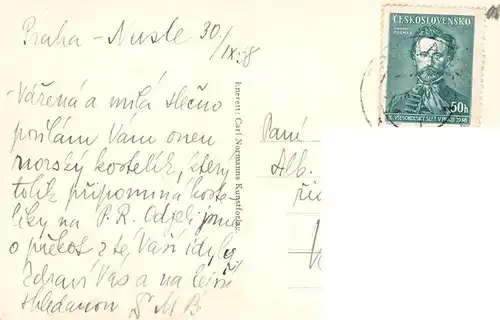 Praha - Nusle 30/IX.
Vážená a milá slečno
posílám Vám onen
norský kostelík, který
tolik připomíná koste-
líky na P. R. Odjeli jsme
o překot z té Vaší idyly
Zdraví Vás a na
shledanou Dr M B
Eneret: Carl Normanns Kunstforlag.
Paní
Alb.
ČESKOSLOVENSKO
50h
X. VŠESOKOLSKÝ SLET V PRAZE 1938